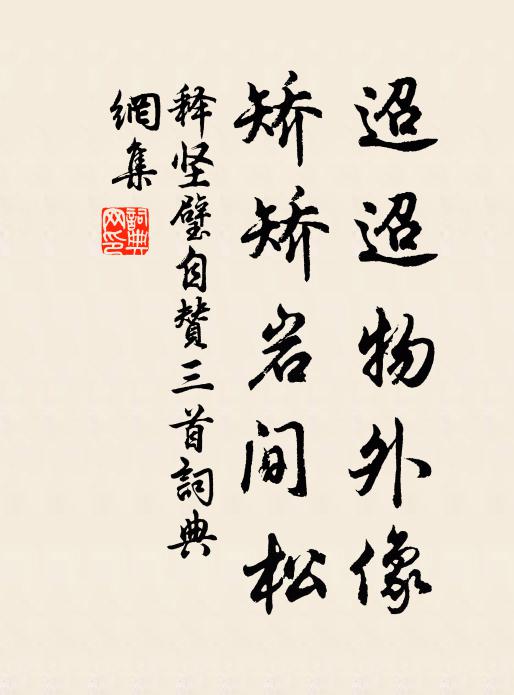 迢迢物外像
矫矫岩间松
释坚璧自赞三首詞典
網集
詞典
网印